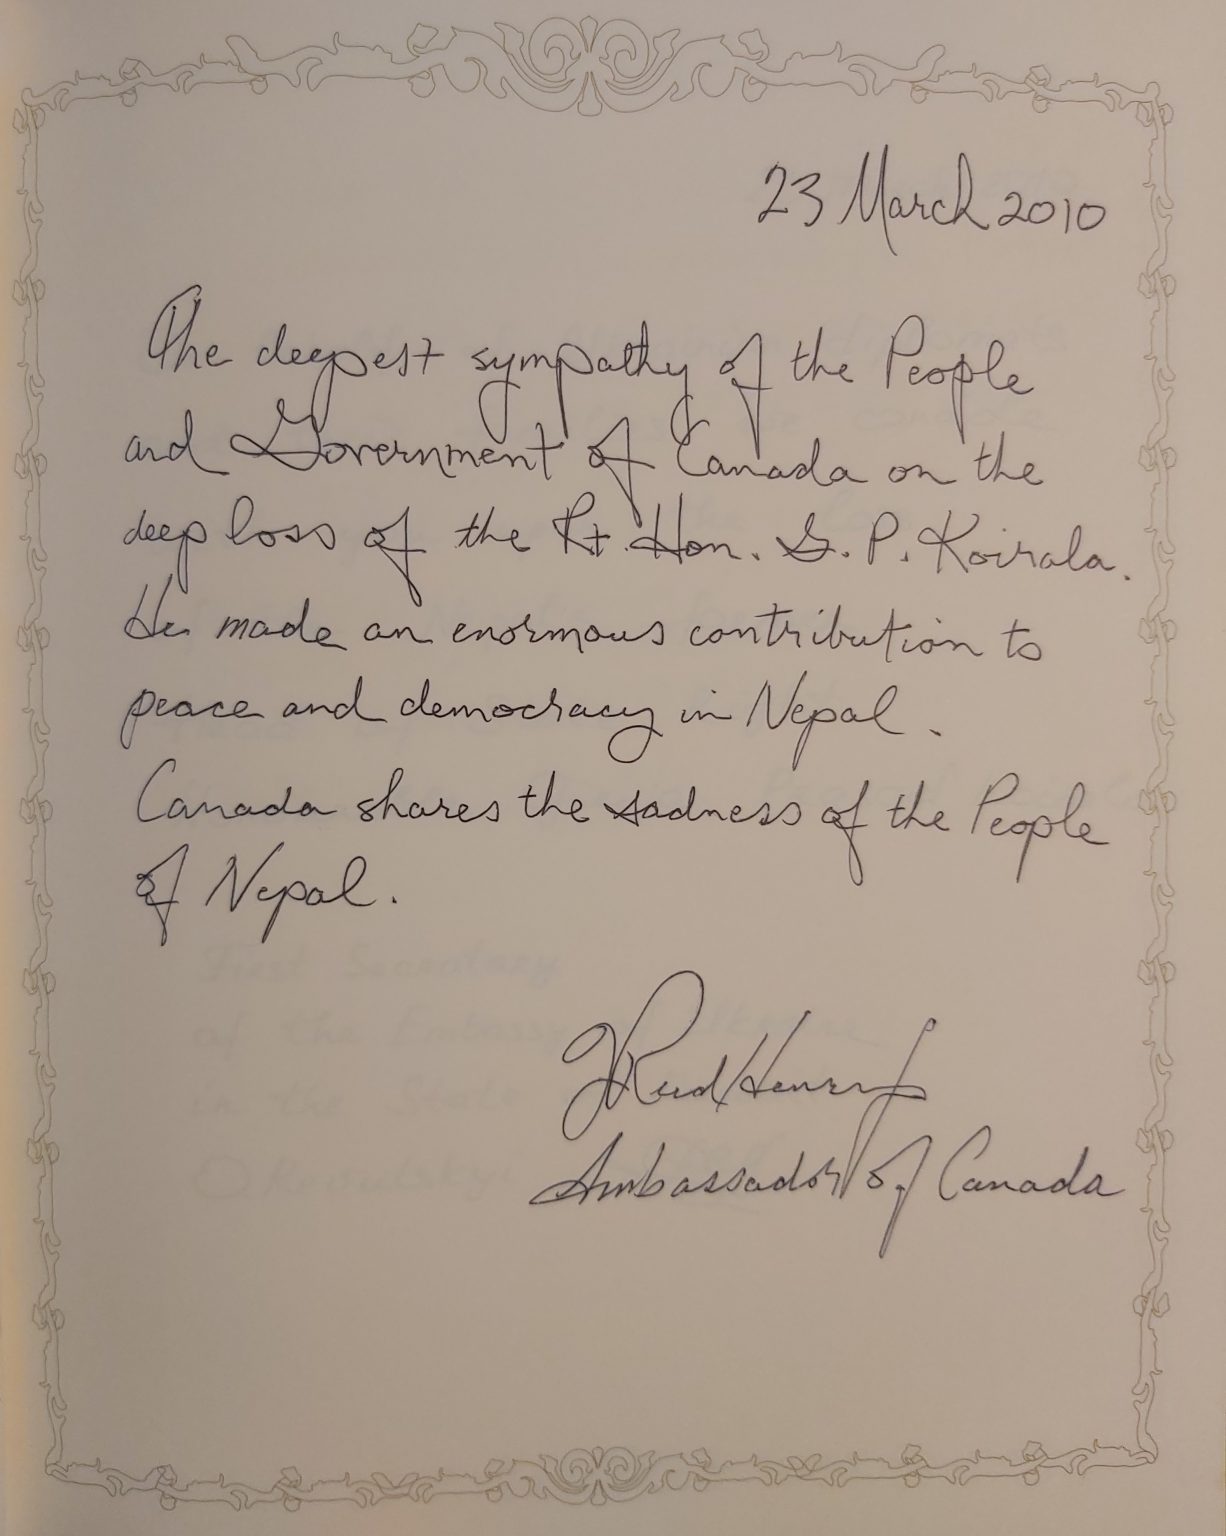 23 March 2010
The deepest sympathy of the People
and Government of Canada on the
deep loss of the Rt. Hon. G. P. Koirala.
He made an enormous contribution to
peace and democracy in Nepal.
Canada shares the sadness of the People
of Nepal.
First Secretary
of the Embassy of Ukraine
in the State
Ambassador of Canada